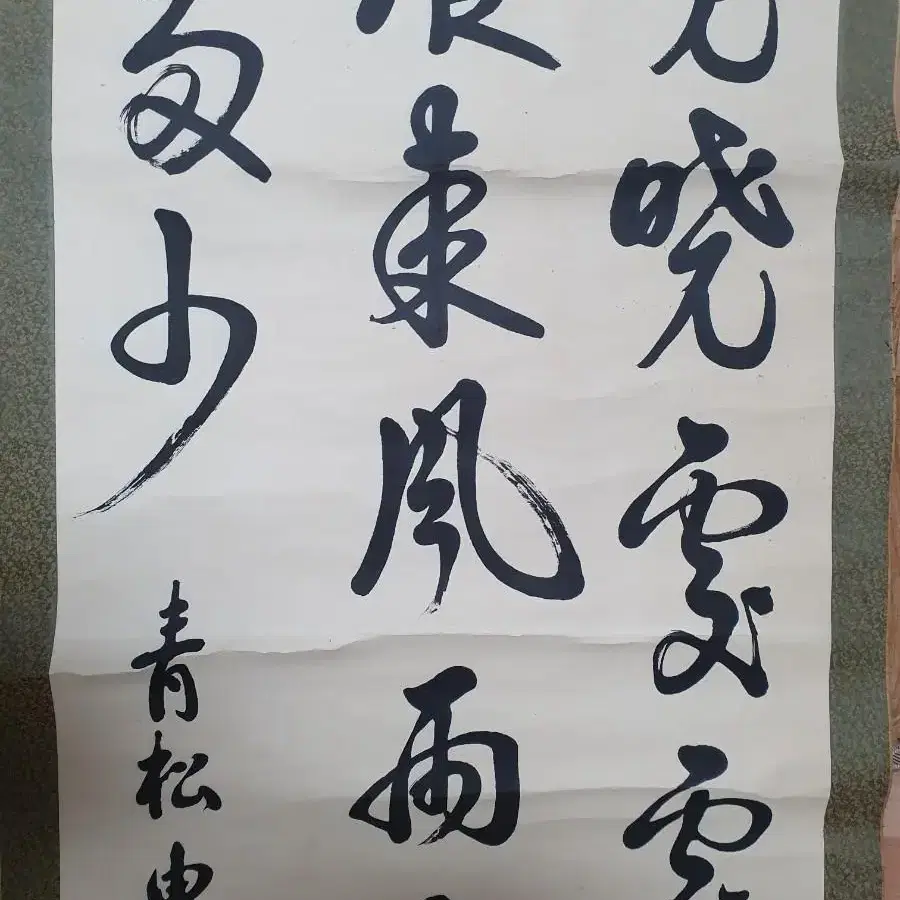 曉處處
來風雨
多少
青松